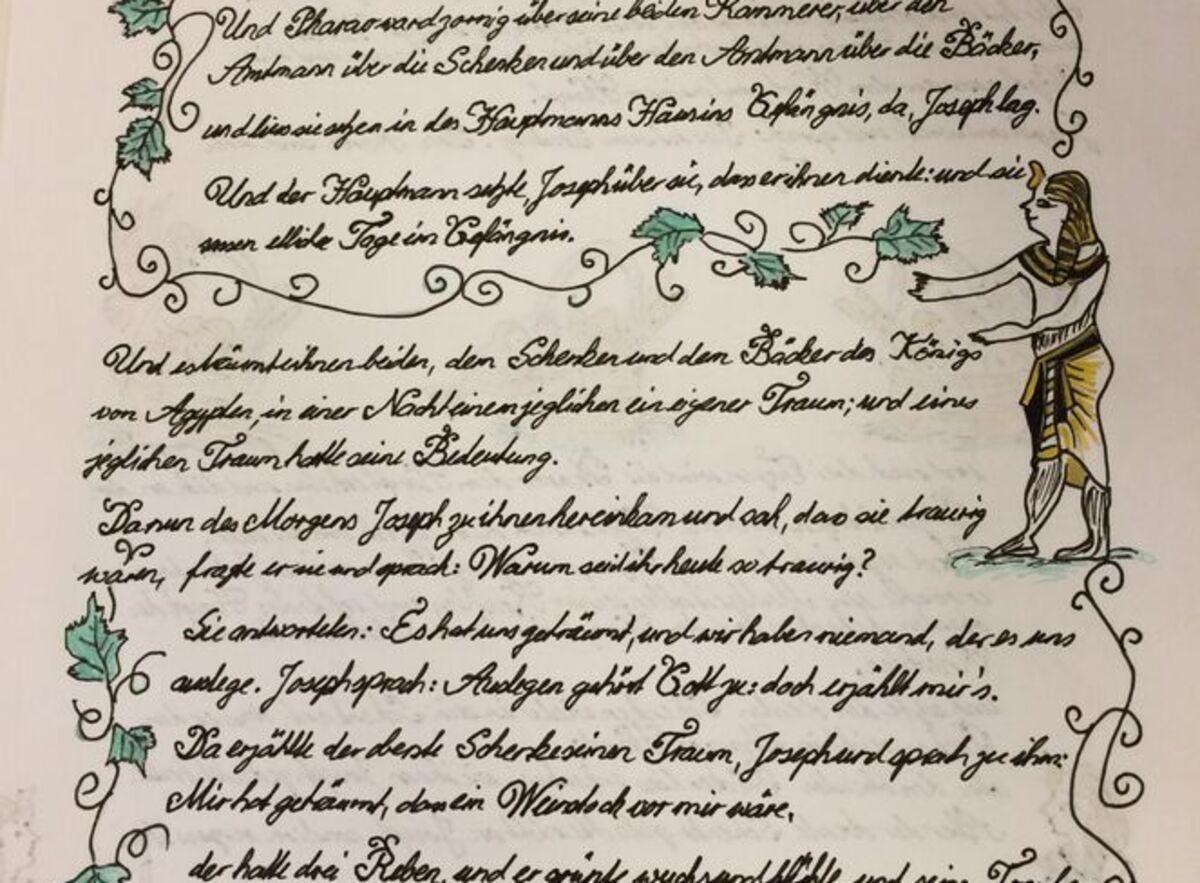 Und Pharao ward zornig über seine beiden Kämmerer, über den
Amtmann über die Schenken und über den Amtmann über die Bäcker,
und liess sie setzen in des Hauptmanns Haus ins Gefängnis, da, Joseph lag.
Und der Hauptmann setzte, Joseph über sie, dass er ihnen diente: und sie
sassen etliche Tage im Gefängnis.
Und es träumte ihnen beiden, dem Schenken und dem Bäcker des Königs
von Ägypten, in einer Nacht einem jeglichen ein eigener Traum; und eines
jeglichen Traum hatte seine Bedeutung.
Da nun des Morgens Joseph zu ihnen hereinkam und sah, dass sie traurig
waren, fragte er sie und sprach: Warum seid ihr heute so traurig?
Sie antworteten: Es hat uns geträumt, und wir haben niemand, der es uns
auslege. Joseph sprach: Auslegen gehört Gott zu: doch erzählt mir's.
Da erzählte der oberste Schenke seinen Traum, Joseph und sprach zu ihm:
Mir hat geträumt, dass ein Weinstock vor mir wäre,
der hatte drei Reben, und er grünte wuchs und blühte und seine